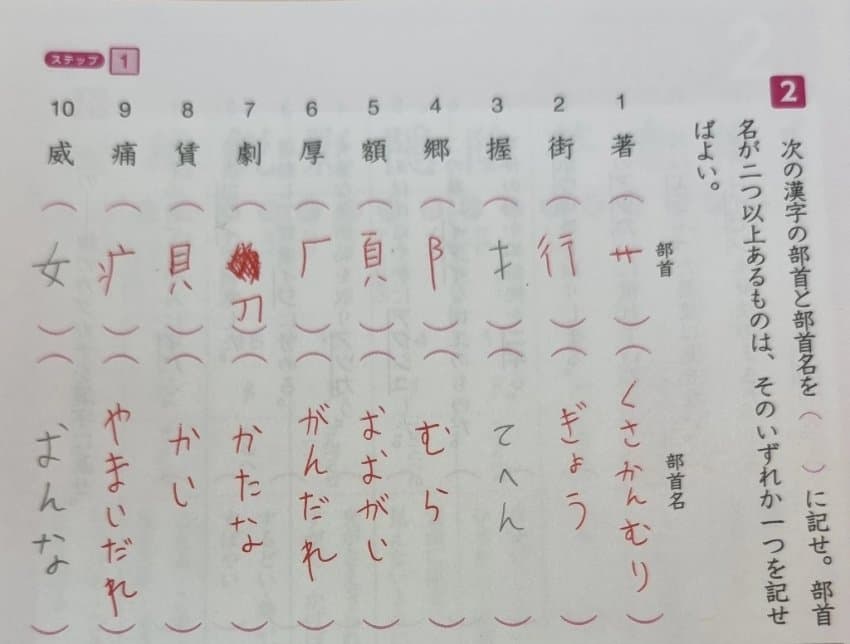 2
次の漢字の部首と部首名を（　）に記せ。部首
名が二つ以上あるものは、そのいずれか一つを記せ
ばよい。
ステップ 1
部首
部首名
1 著（艹）（くさかんむり）
2 街（行）（ぎょう）
3 握（扌）（てへん）
4 郷（阝）（むら）
5 額（頁）（おおがい）
6 厚（厂）（がんだれ）
7 劇（刀）（かたな）
8 賃（貝）（かい）
9 痛（疒）（やまいだれ）
10 威（女）（おんな）